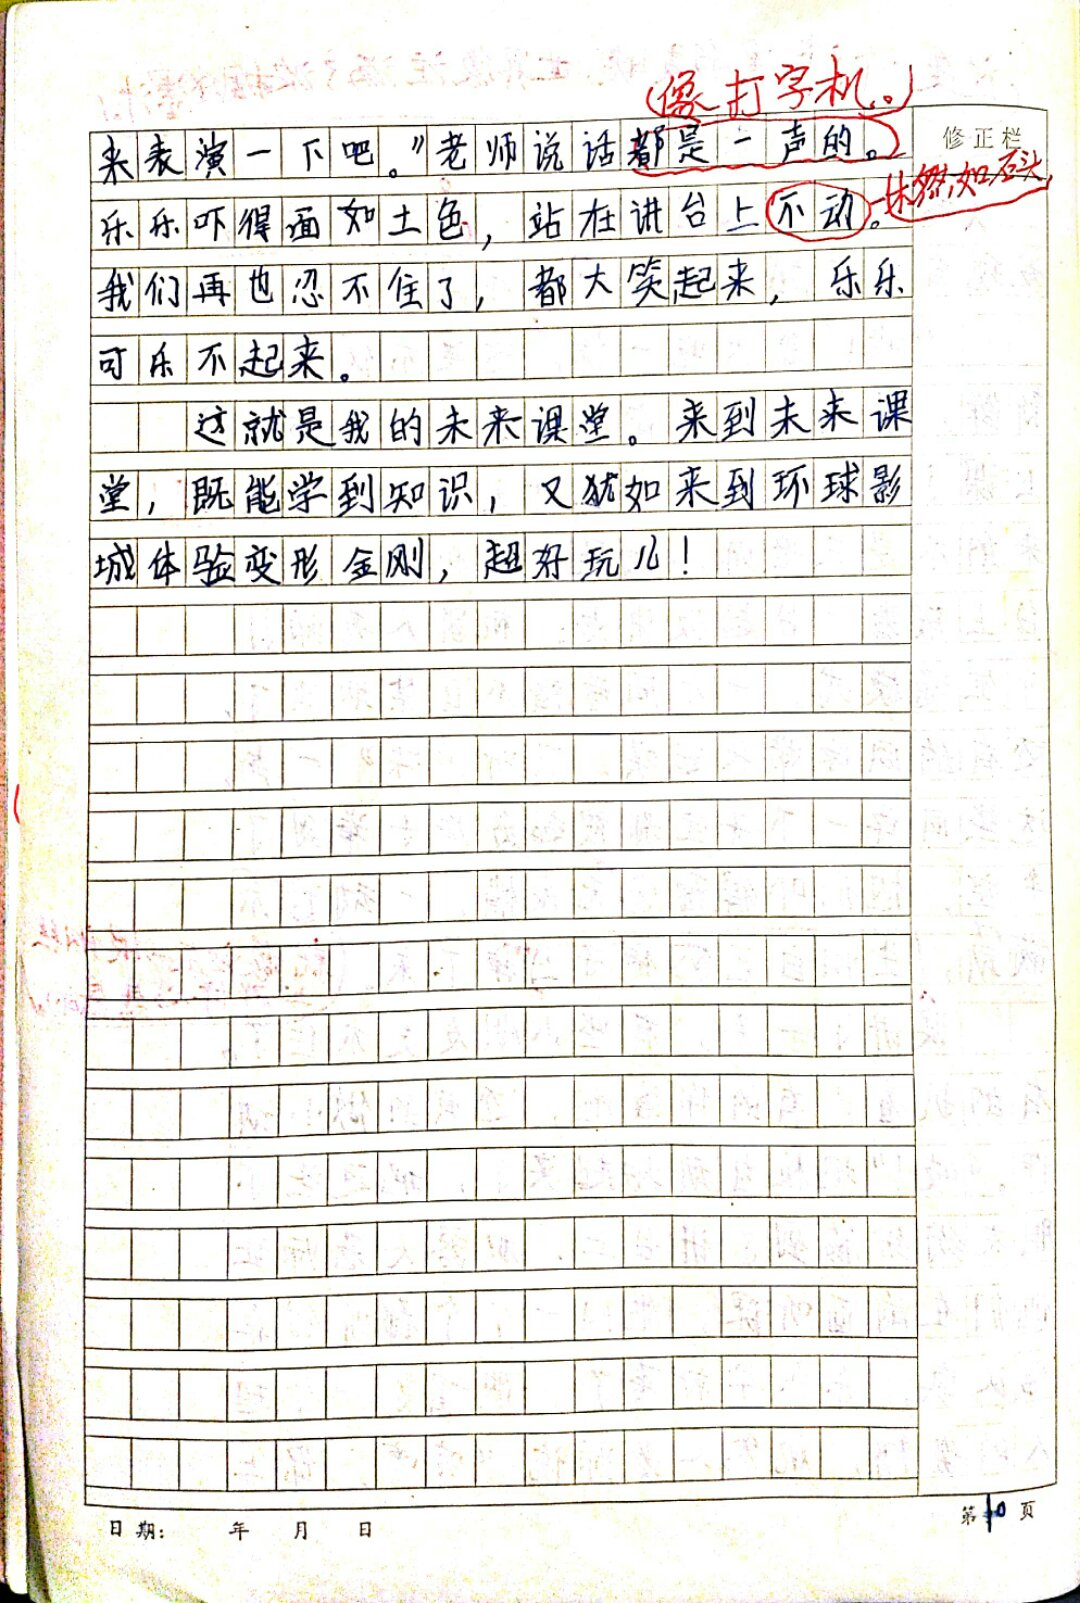 (像打字机。)
修正栏
来表演一下吧。”老师说话都是一声的。
呆然如石头
乐乐吓得面如土色，站在讲台上不动。
我们再也忍不住了，都大笑起来，乐乐
可乐不起来。
这就是我的未来课堂。来到未来课
堂，既能学到知识，又犹如来到环球影
城体验变形金刚，超好玩儿！
日期： 年 月 日
第10页